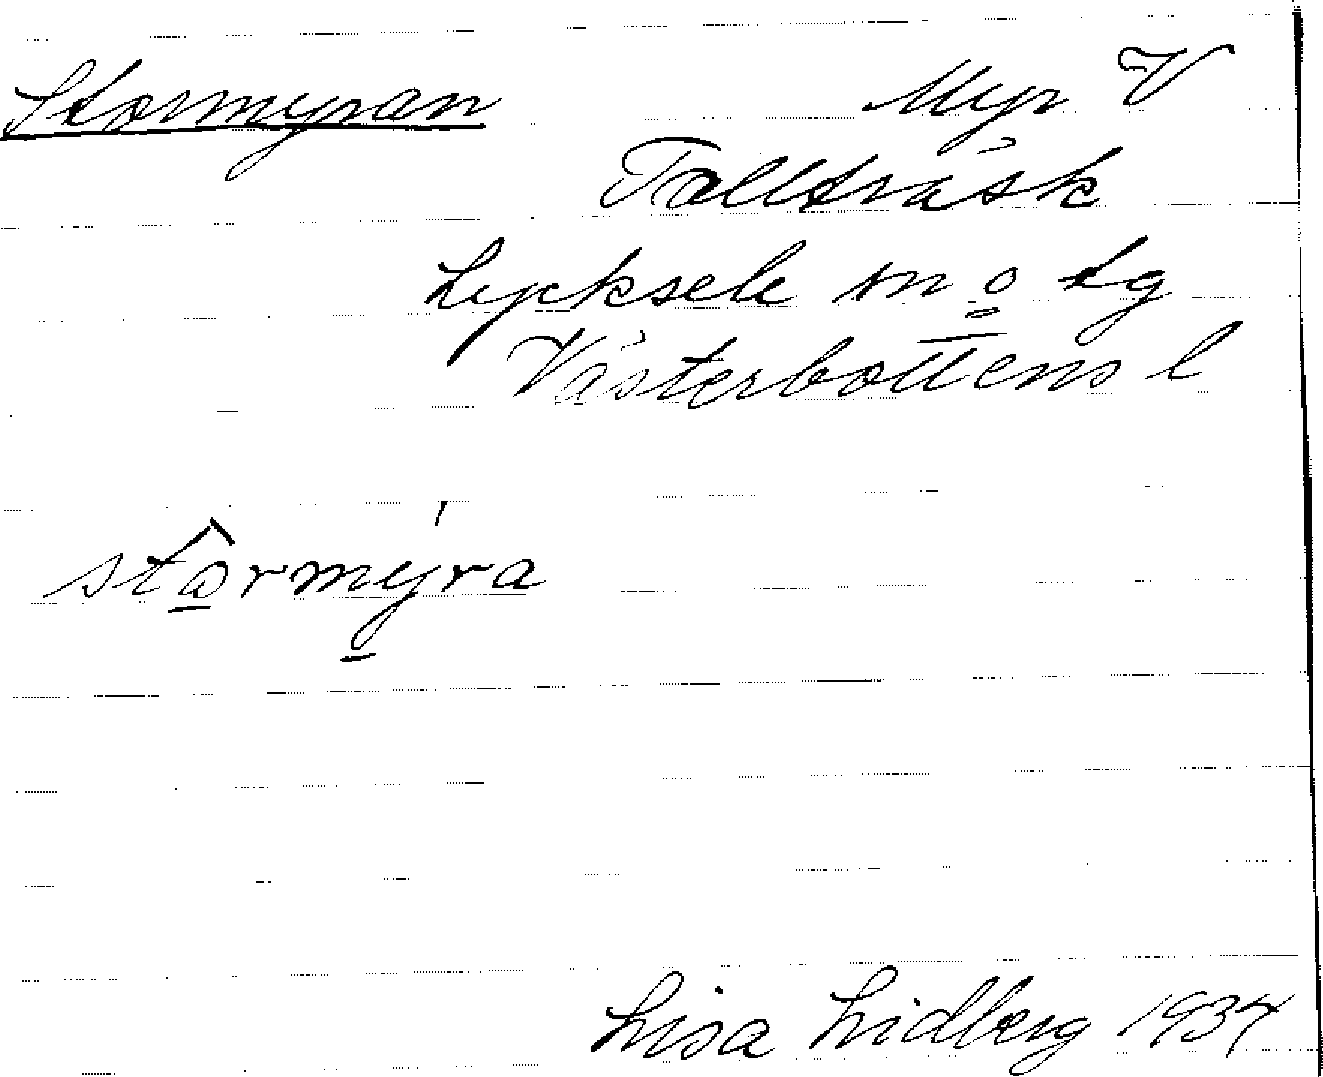 Stormyran Myr V
Tallträsk
Lycksele sn o tg
Västerbottens l
stô̲rmý̲ra
Lisa Lidberg 1934